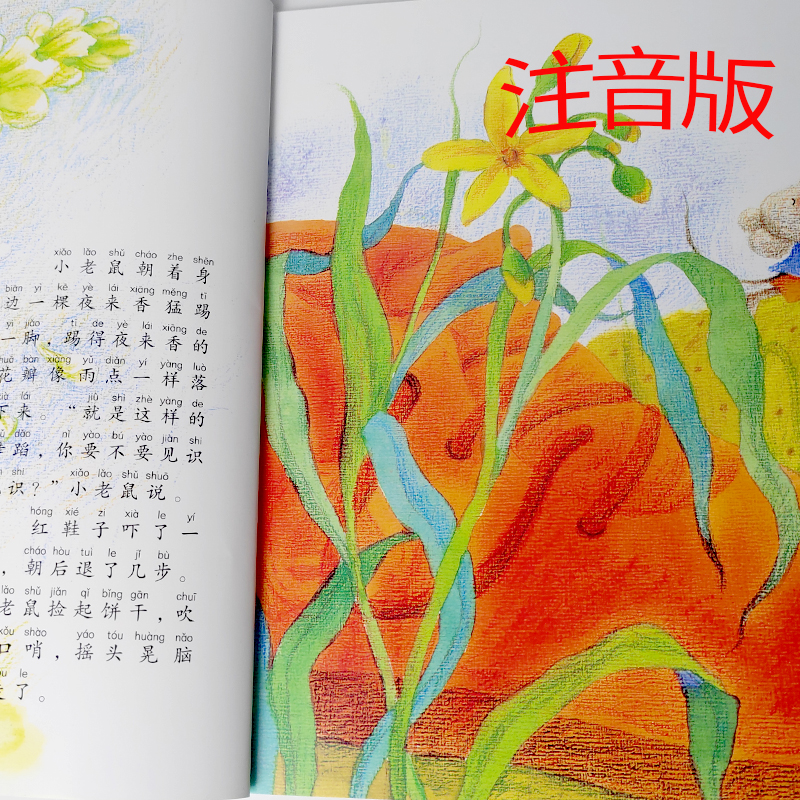 注音版
xiǎo lǎo shǔ cháo zhe shēn
小老鼠朝着身
biān yì kē yè lái xiāng měng tī
边一棵夜来香猛踢
yì jiǎo tī de yè lái xiāng de
一脚，踢得夜来香的
huā bàn xiàng yǔ diǎn yí yàng luò
花瓣像雨点一样落
xià lái jiù shì zhè yàng de
下来。“就是这样的
dǎo nǐ yào bú yào jiàn shi
蹈，你要不要见识
shi xiǎo lǎo shǔ shuō
识？”小老鼠说。
hóng xié zi xià le yí
红鞋子吓了一
cháo hòu tuì le jǐ bù
，朝后退了几步。
lǎo shǔ jiǎn qǐ bǐng gān chuī
老鼠捡起饼干，吹
kǒu shào yáo tóu huàng nǎo
口哨，摇头晃脑
le
了。